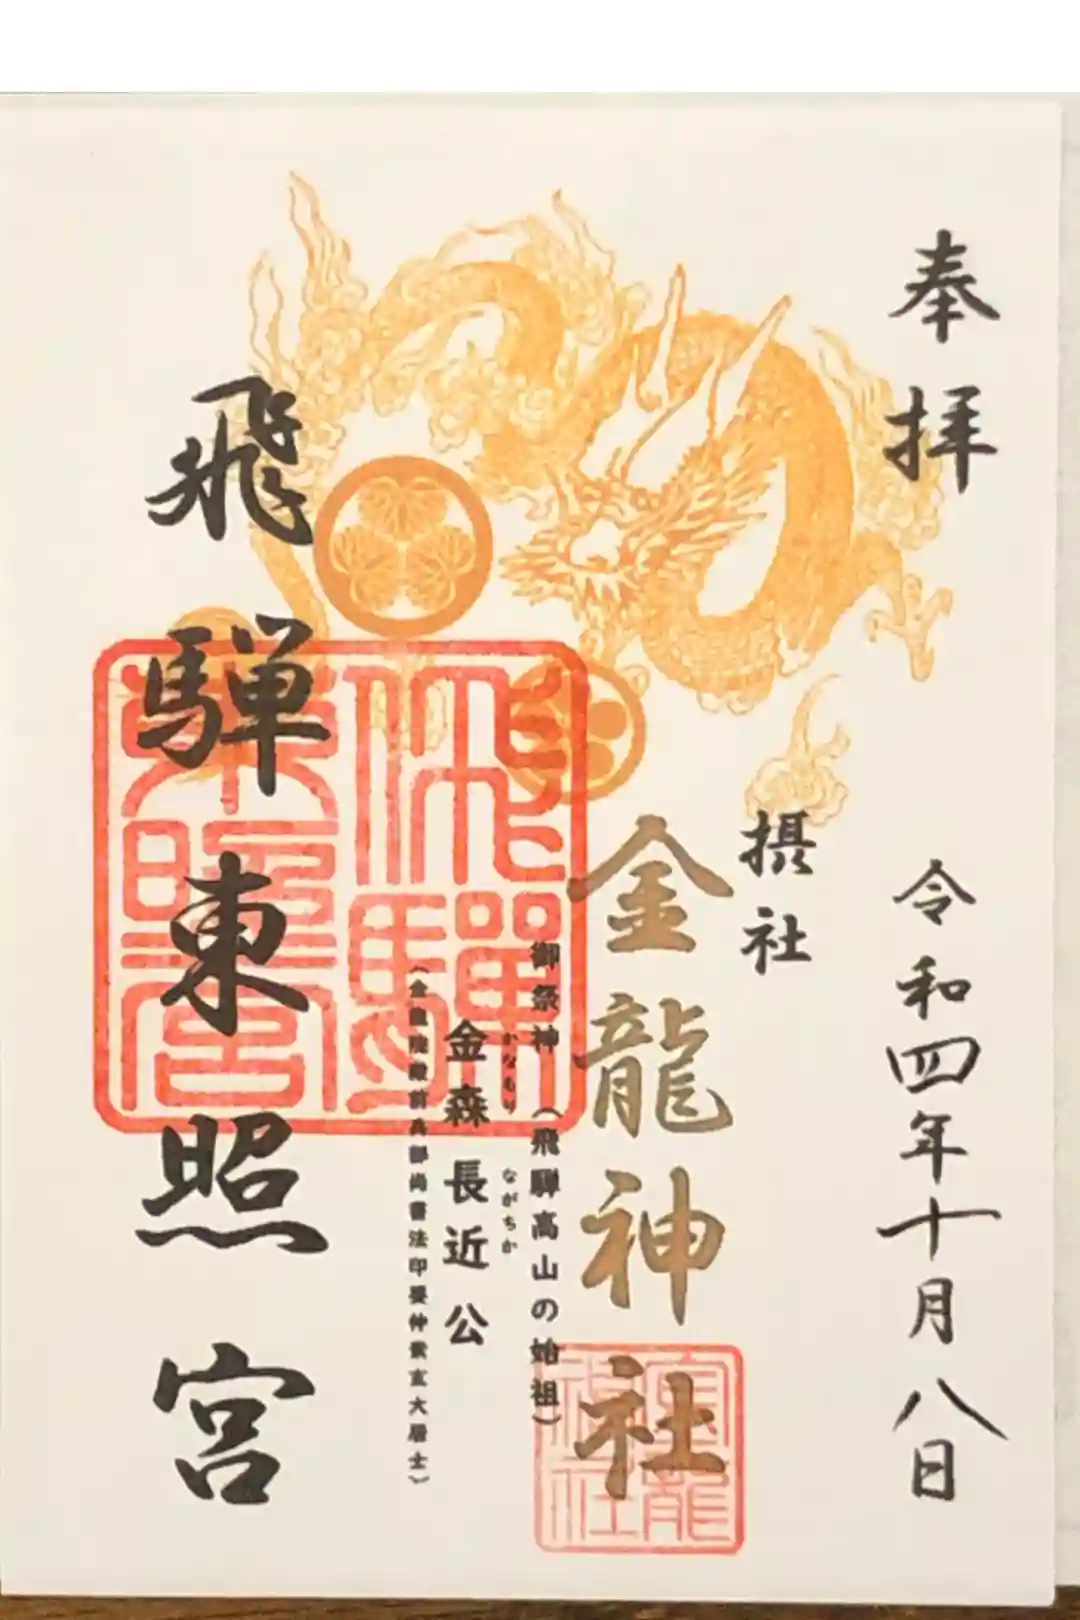 奉拝
令和四年十月八日
摂社
金龍神社
御祭神（飛騨高山の始祖）
かなもり ながちか
金森長近公
（金龍院殿前兵部尚書法印要仲素玄大居士）
飛騨東照宮
飛騨東照宮
金龍神社